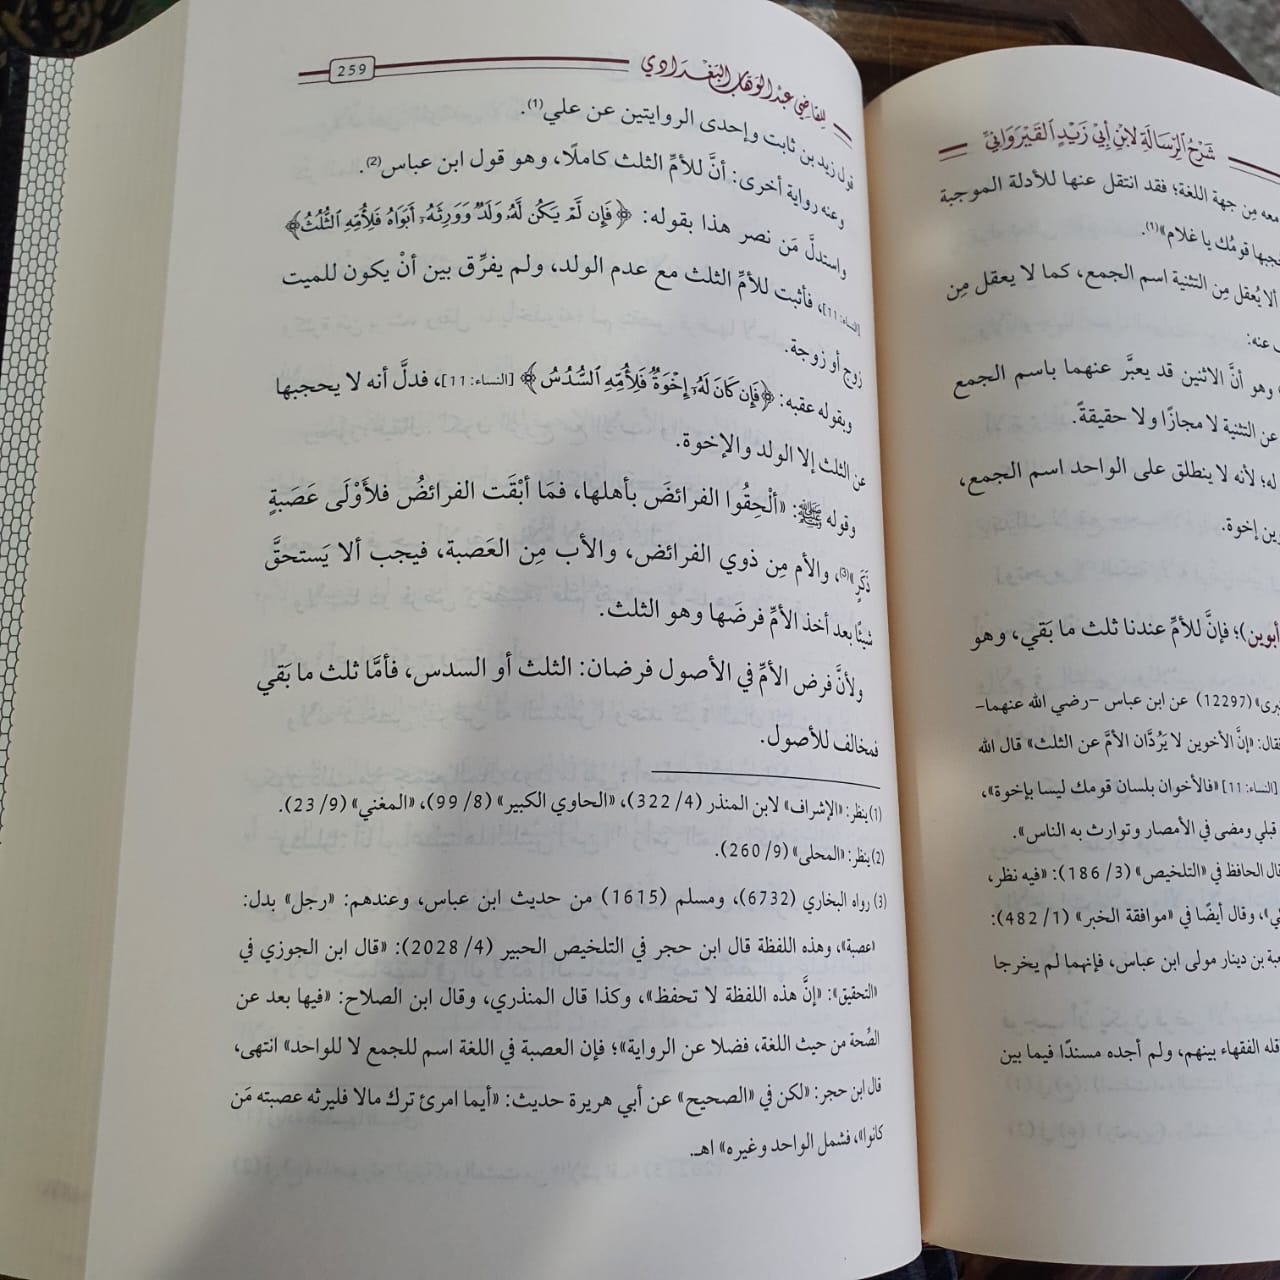 شَرْحُ الرِّسَالَةِ لابْنِ أَبِيْ زَيْدٍ القَيْرَوَانِيِّ
معه مِن جهة اللغة؛ فقد انتقل عنها للأدلة الموجبة
حجبها قومُك يا غلام»(1).
ألا يُعقل مِن التثنية اسم الجمع، كما لا يعقل مِن
عنه:
وهو أنَّ الاثنين قد يعبَّر عنهما باسم الجمع
عن التثنية لا مجازًا ولا حقيقةً.
له؛ لأنه لا ينطلق على الواحد اسم الجمع،
إخوة.
أبوين)؛ فإنَّ للأمِّ عندنا ثلث ما بَقي، وهو
(12297) عن ابن عباس –رضي الله عنهما–
فقال: «إنَّ الأخوين لا يَرُدَّان الأمَّ عن الثلث» قال الله
[النساء: 11] «فالأخوان بلسان قومك ليسا بإخوة»،
قبلي ومضى في الأمصار وتوارث به الناس».
قال الحافظ في «التلخيص» (3/ 186): «فيه نظر،
وقال أيضًا في «موافقة الخبر» (1/ 482):
بن دينار مولى ابن عباس، فإنهما لم يخرجا
الفقهاء بينهم، ولم أجده مسندًا فيما بين
للقاضي عبد الوهاب البَغْدَادي
259
قول زيد بن ثابت وإحدى الروايتين عن علي(1).
وعنه رواية أخرى: أنَّ للأمِّ الثلث كاملًا، وهو قول ابن عباس(2).
واستدلَّ مَن نصر هذا بقوله: ﴿فَإِن لَّمْ يَكُن لَّهُۥ وَلَدٌ وَوَرِثَهُۥٓ أَبَوَاهُ فَلِأُمِّهِ ٱلثُّلُثُ﴾
[النساء: 11]، فأثبت للأمِّ الثلث مع عدم الولد، ولم يفرِّق بين أنْ يكون للميت
زوج أو زوجة.
وبقوله عقبه: ﴿فَإِن كَانَ لَهُۥٓ إِخْوَةٌ فَلِأُمِّهِ ٱلسُّدُسُ﴾ [النساء: 11]، فدلَّ أنه لا يحجبها
عن الثلث إلا الولد والإخوة.
وقوله ﷺ: «ألْحِقُوا الفرائضَ بأهلها، فمَا أبْقَت الفرائضُ فلأَوْلَى عَصَبةٍ
ذَكَرٍ»(3)، والأم مِن ذوي الفرائض، والأب مِن العَصبة، فيجب ألا يَستحقَّ
شيئًا بعد أخذ الأمِّ فرضَها وهو الثلث.
ولأنَّ فرض الأمِّ في الأصول فرضان: الثلث أو السدس، فأمَّا ثلث ما بَقي
فمخالف للأصول.
(1) ينظر: «الإشراف» لابن المنذر (4/ 322)، «الحاوي الكبير» (8/ 99)، «المغني» (9/ 23).
(2) ينظر: «المحلى» (9/ 260).
(3) رواه البخاري (6732)، ومسلم (1615) من حديث ابن عباس، وعندهم: «رجل» بدل:
«عصبة»، وهذه اللفظة قال ابن حجر في التلخيص الحبير (4/ 2028): «قال ابن الجوزي في
«التحقيق»: «إنَّ هذه اللفظة لا تحفظ»، وكذا قال المنذري، وقال ابن الصلاح: «فيها بعد عن
الصِّحة من حيث اللغة، فضلا عن الرواية»؛ فإن العصبة في اللغة اسم للجمع لا للواحد» انتهى،
قال ابن حجر: «لكن في «الصحيح» عن أبي هريرة حديث: «أيما امرئ ترك مالا فليرثه عصبته مَن
كانوا»، فشمل الواحد وغيره» اهـ.